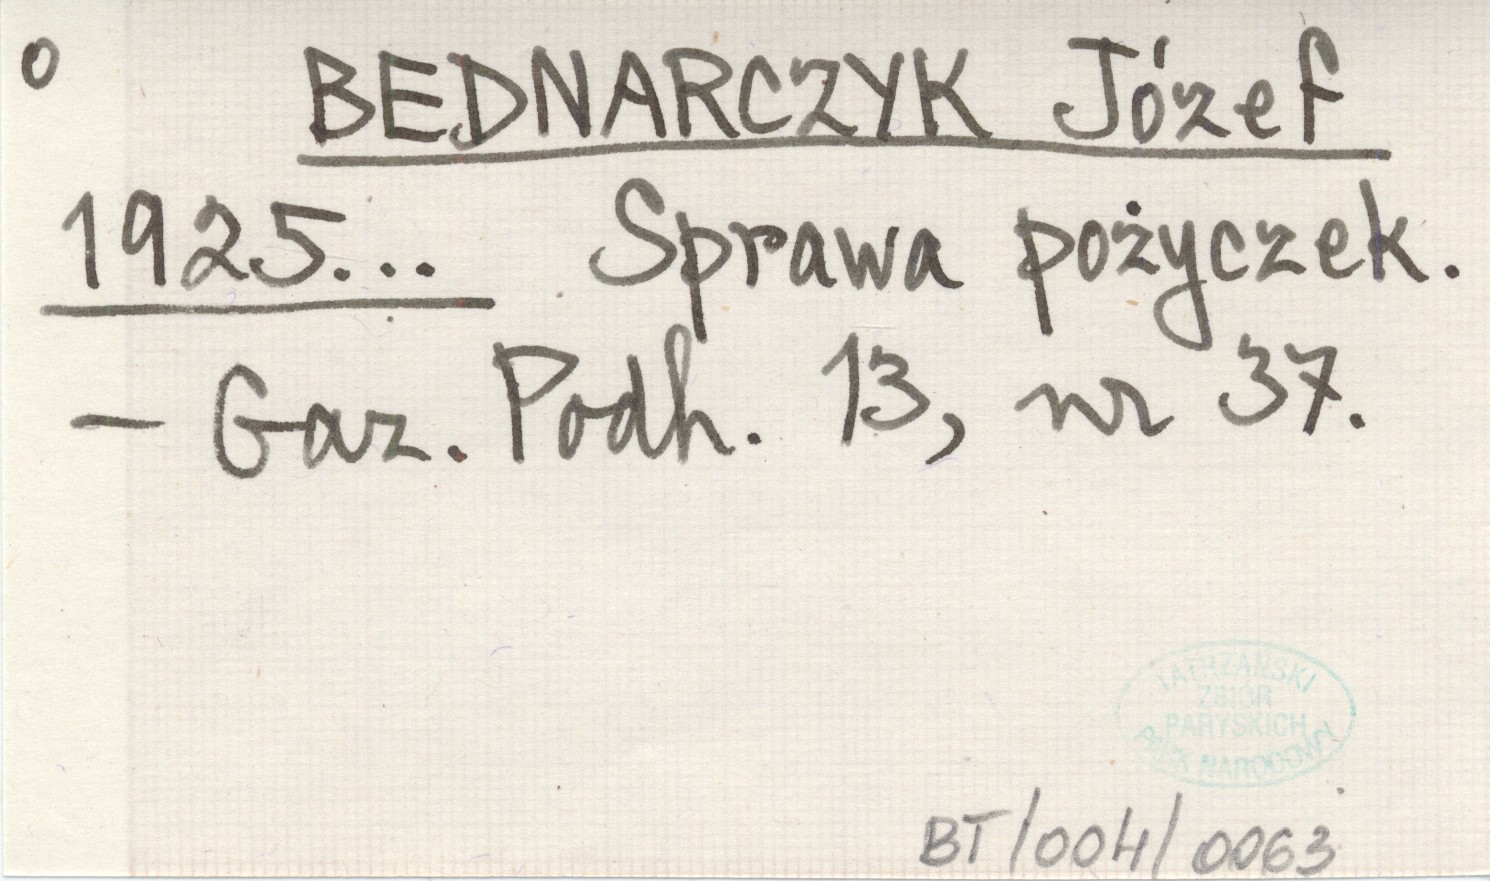 o BEDNARCZYK Józef
1925... Sprawa pożyczek.
– Gaz. Podh. 13, nr 37.
TATRZAŃSKI
ZBIÓR
PARYSKICH
PARK NARODOWY
BT/004/0063